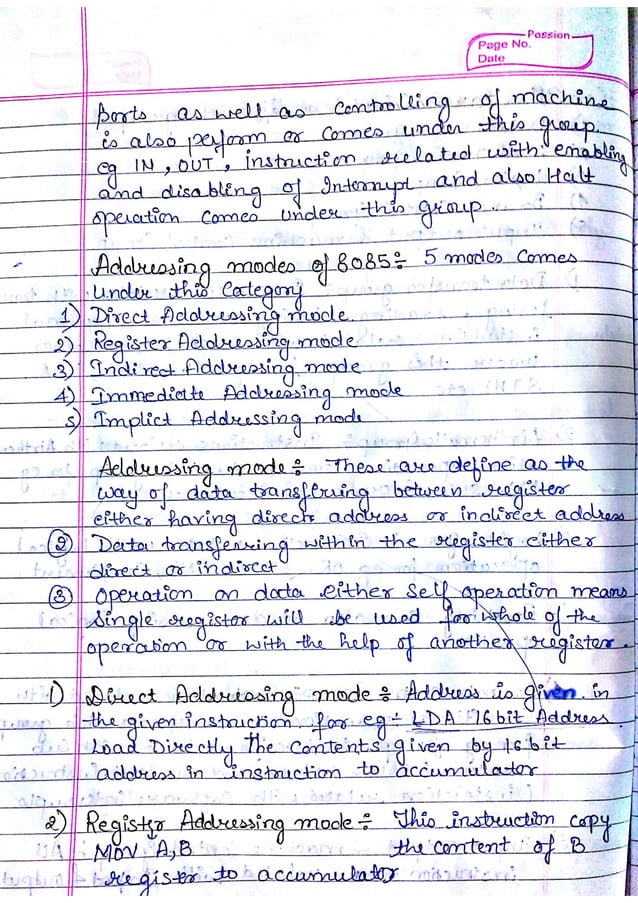 Passion
Page No.
Date
ports as well as controlling of machine
is also perform or comes under this group.
eg IN, OUT, instruction related with enabling
and disabling of Interrupt and also Halt
operation comes under this group.
Addressing modes of 8085÷ 5 modes comes
under this category
1) Direct Addressing mode
2) Register Addressing mode
3) Indirect Addressing mode
4) Immediate Addressing mode
5) Implict Addressing mode
Addressing mode÷ These are define as the
way of data transferring between register
either having direct address or indirect address
② Data transferring within the register either
direct or indirect
③ Operation on data either self operation means
single register will be used for whole of the
operation or with the help of another register.
1) Direct Addressing mode÷ Address is given in
the given instruction for eg÷ LDA 16 bit Address
Load Directly the contents given by 16 bit
address in instruction to accumulator
2) Register Addressing mode÷ This instruction copy
MOV A,B the content of B
register to accumulator